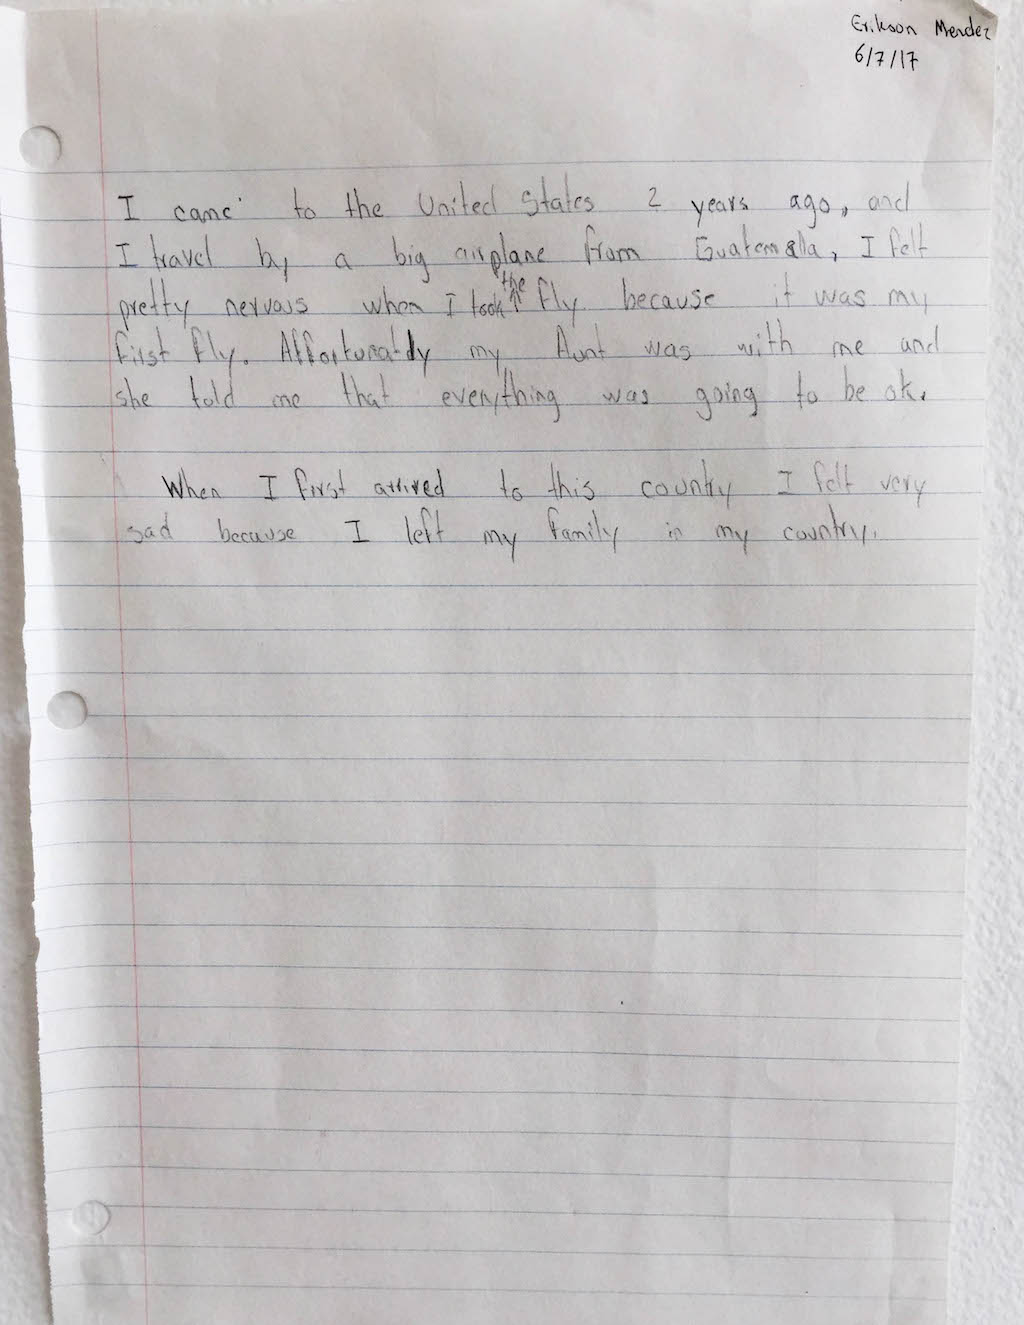 Erikson Mendez
6/7/17
I came to the United States 2 years ago, and
I travel by a big airplane from Guatemala, I felt
pretty nervous when I took the fly because it was my
first fly. Affortunatdly my Aunt was with me and
she told me that everything was going to be ok.
When I first arrived to this country I felt very
sad because I left my family in my country.